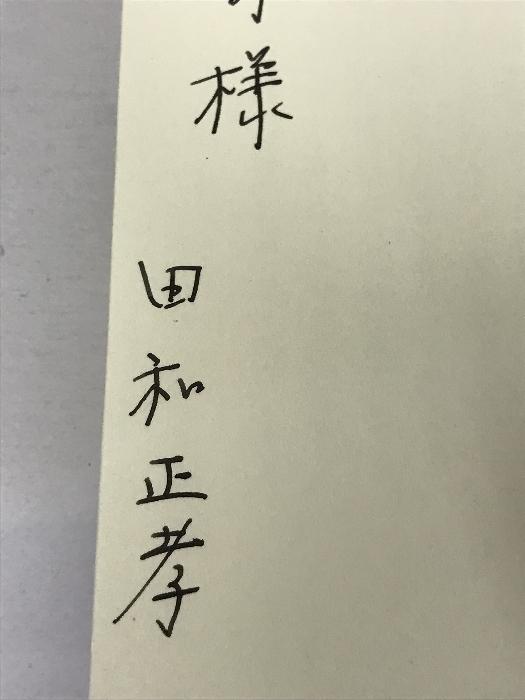 様
田和正孝